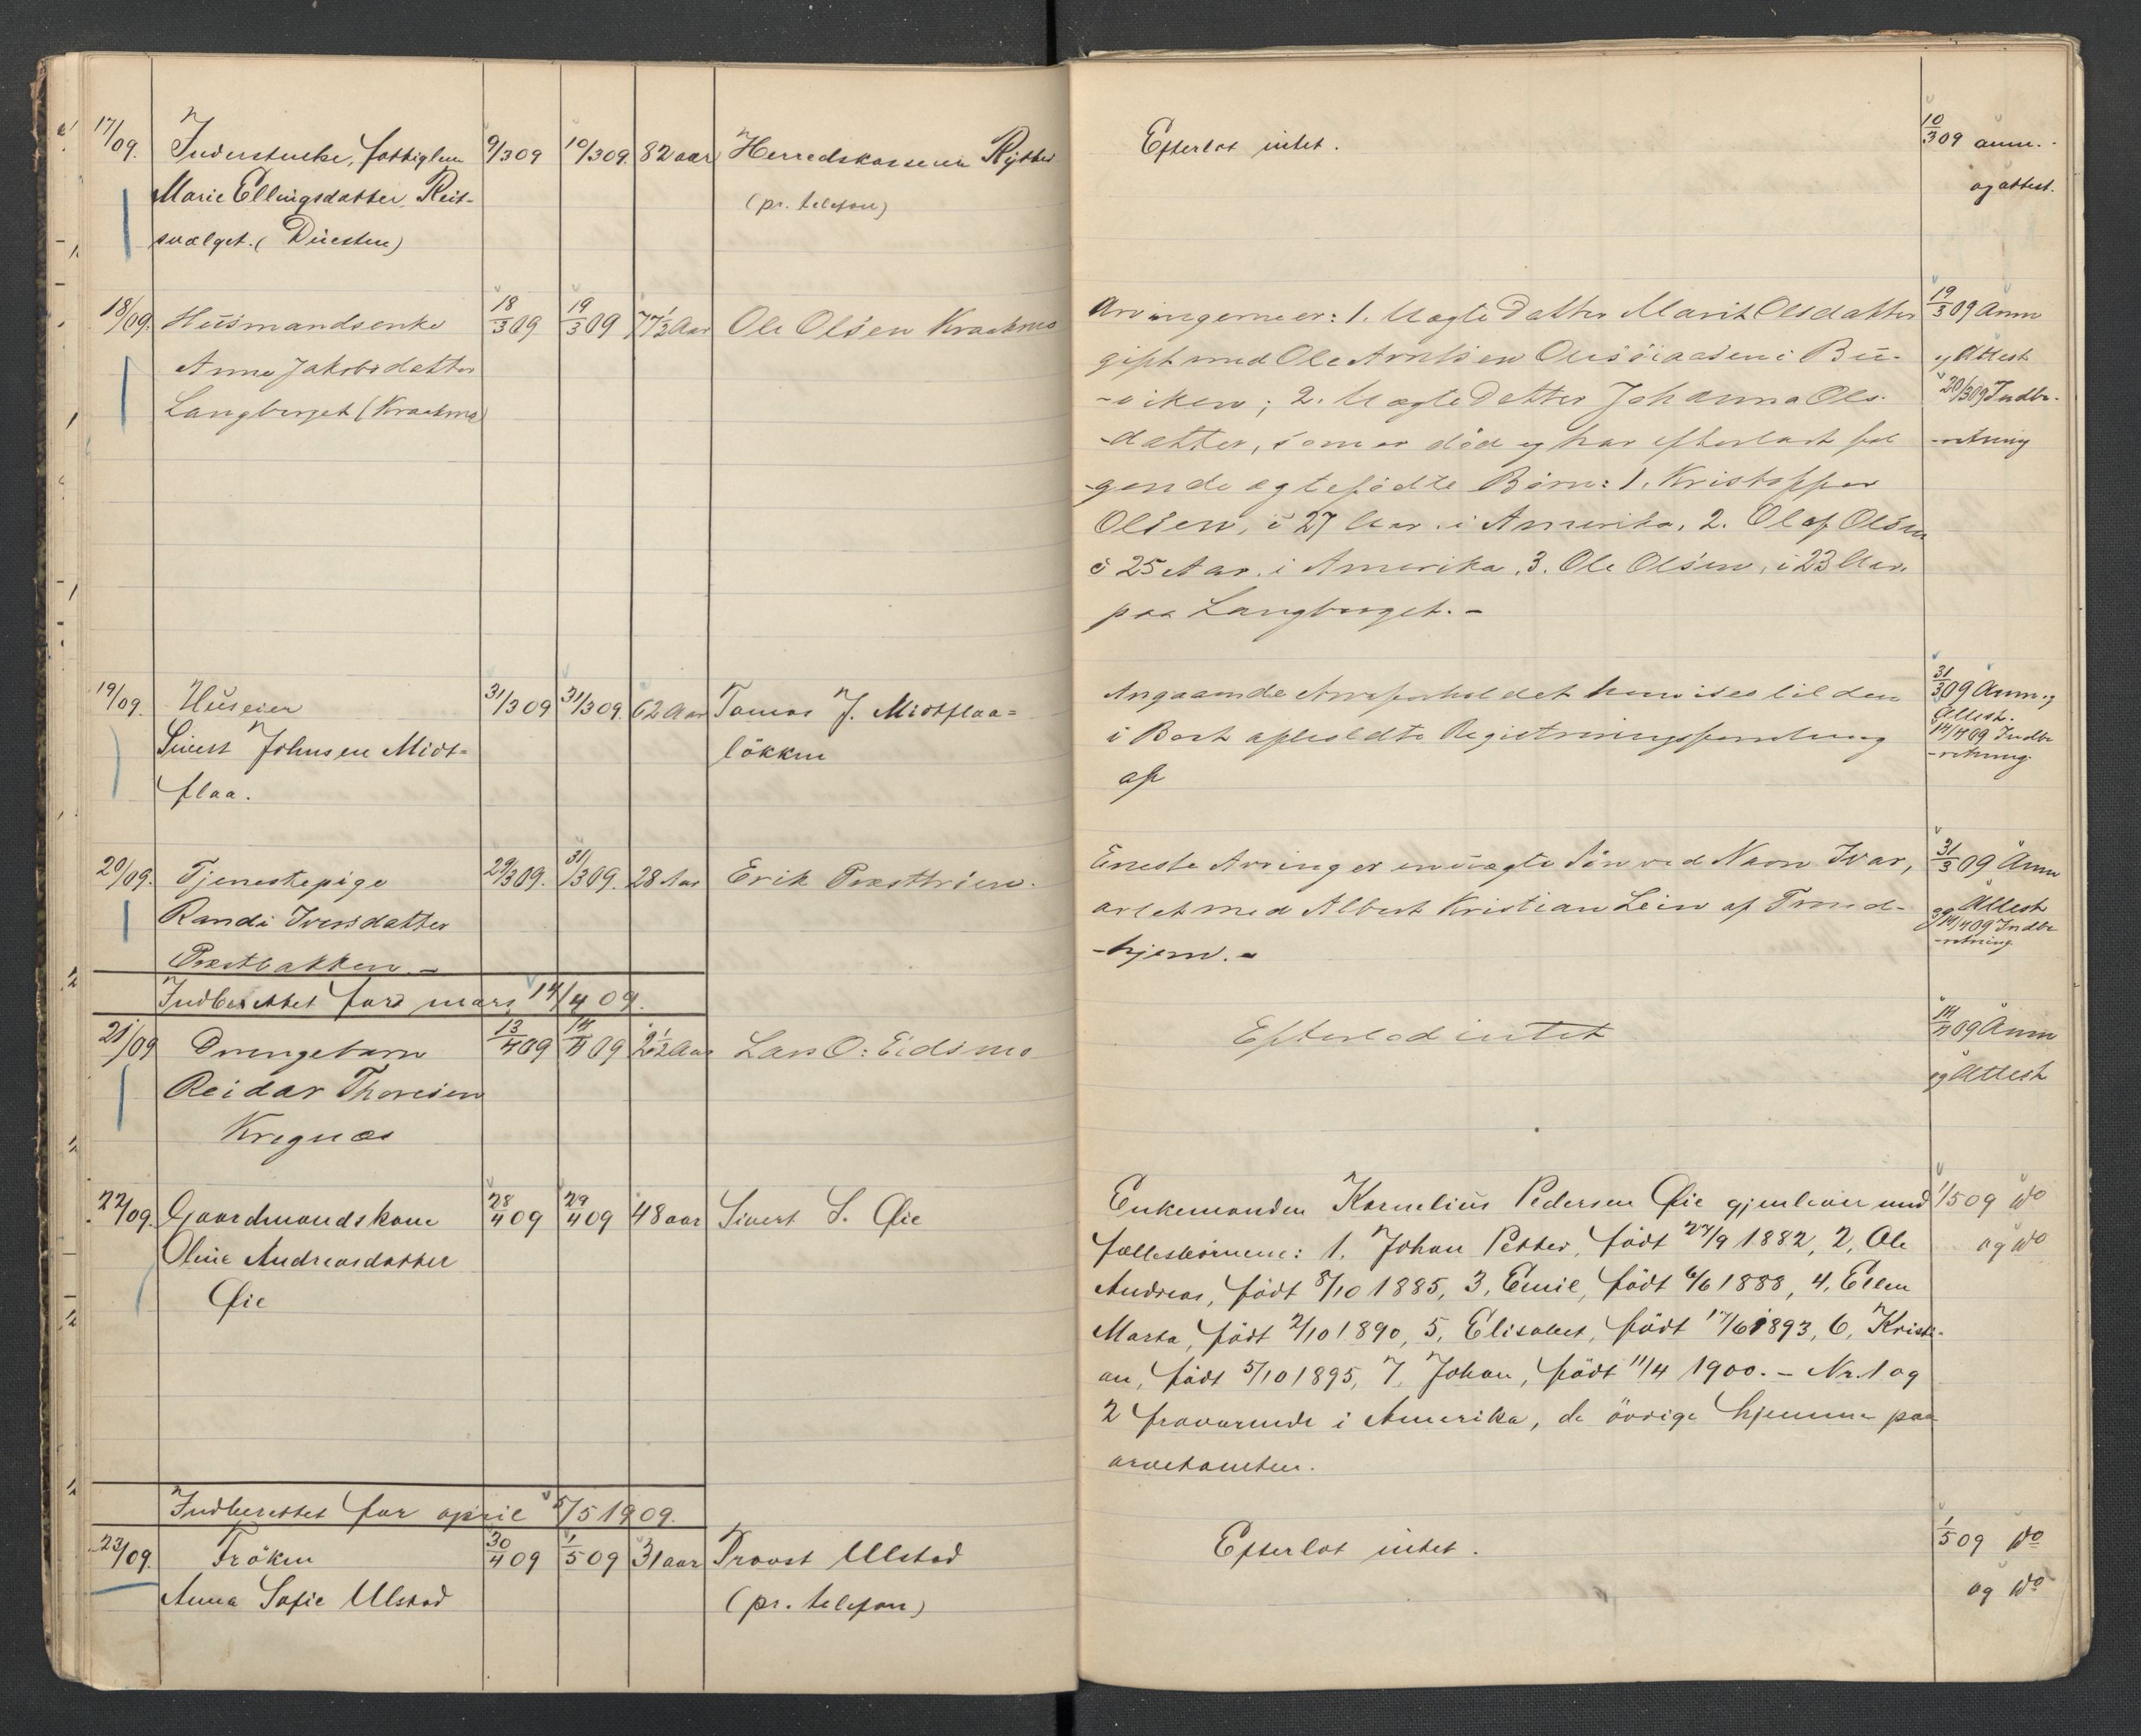 17/09. Inderstenke, fattiglem 9/3 09 10/3 09. 82 aar Herredskasserer Rytter
Marie Ellingsdatter Reit- (pr. telefon)
svælget. (Duesten)
Efterlot intet. 10/3 09 anm.
og attest.
18/09. Husmandsenke 18/3 09 19/3 09 77 1/2 Aar Ole Olsen Kraakmo
Anne Jakobsdatter
Langberget (Kraakmo)
Arvingerne er: 1. Uægte Datter Marit Olsdatter 19/3 09 Anm
gift med Ole Arntsen i Bu- og Attest
-viken; 2. Uægte Datter Johanna Ols- 20/3 09 Indbe-
-datter, som er död og har efterladt föl -retning
-gende ægtefødte Børn: 1. Kristoffer
Olsen, i 27 Aar. i Amerika, 2. Olaf Olsen
i 25 Aar. i Amerika, 3. Ole Olsen, i 23 Aar,
paa Langberget. -
19/09. Huseier 31/3 09 31/3 09. 62 Aar Tomas J. Midtflaa=
Sivert Johnsen Midt- lökken
flaa.
Angaaende Arveforholdet henvises til den 31/3 09 Anm og
i Boet afholdte Registreringsforretning Attest.
af 14/4 09 Indbe
-retning
20/09. Tjenestepige 29/3 09. 31/3 09. 28 Aar Erik Præsttrøen.
Randi Iversdatter
Præstbakken -
Eneste Arving er en uægte Søn ved Navn Ivar, 31/3 09 Anm
avlet med Albert Kristian Lein af Trond- og Attest
-hjem. - 14/4 09 Indbe
-retning
Indberettet for mars 14/4 09.
21/09 Drengebarn 13/4 09 14/4 09 2 1/2 Aar Lars O. Eidsmo
Reidar Thoresen
Kregnæs
Efterlod intet 14/4 09 Anm
og Attest
22/09. Gaardmandskone 28/4 09 29/4 09 48 aar Sivert S. Øie
Oline Andreasdatter
Øie
Enkemanden Kornelius Pedersen Øie gjenlever med 1/5 09 do
fællesbörnene: 1. Johan Petter, född 27/9 1882, 2, Ole og do
Andreas, född 8/10 1885, 3, Emil, född 6/6 1888, 4, Ellen
Marta, född 2/10 1890, 5, Elisabet, född 17/6 1893, 6, Kristi-
an, född 5/10 1895, 7, Johan, född 11/4 1900. - Nr. 1 og
2 fraværende i Amerika, de övrige hjemme paa
arvetomten.
Indberettet for april 5/5 1909.
23/09. Fröken 30/4 09 1/5 09 31 aar Provst Ulstad
Anna Sofie Ulstad (pr. telefon)
Efterlot intet. 1/5 09 do
og do